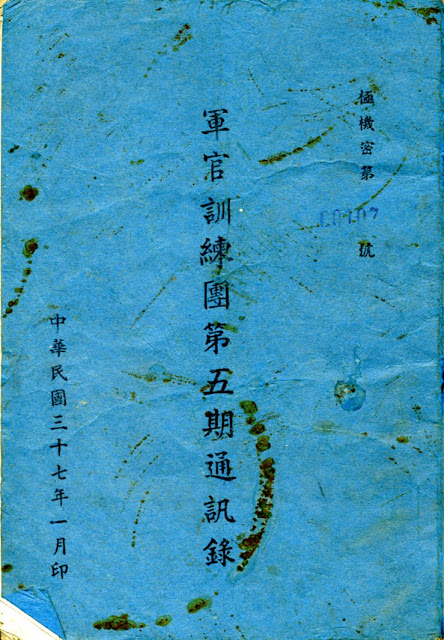 極機密第 號
軍官訓練團第五期通訊錄
中華民國三十七年一月印